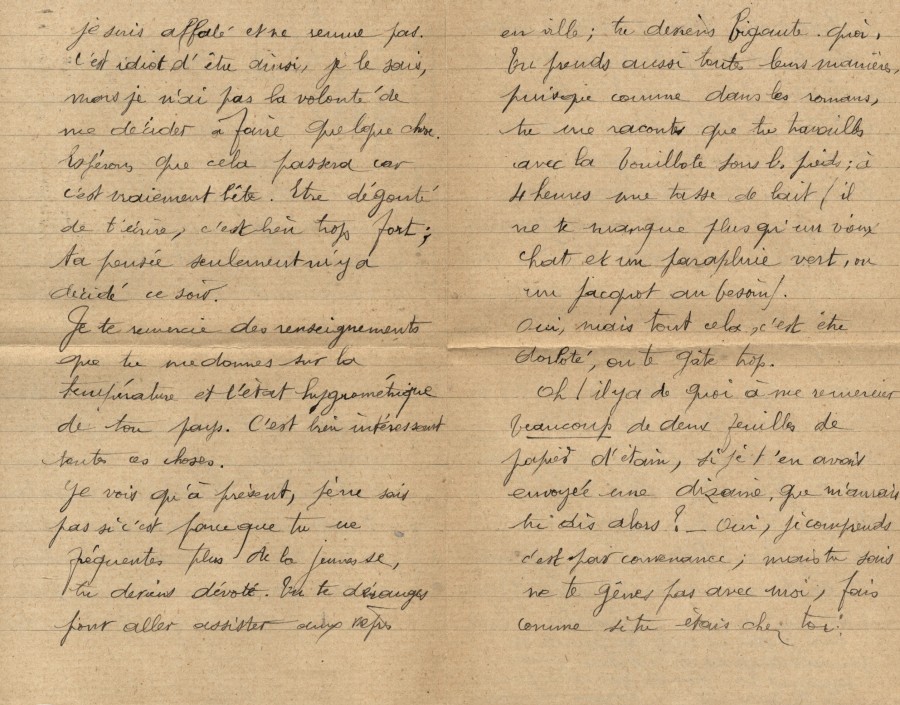 je suis affalé et ne remue pas.
C'est idiot d'être ainsi, je le sais,
mais je n'ai pas la volonté de
me décider à faire quelque chose.
Espérons que cela passera car
c'est vraiement bête. Etre dégouté
de t'écrire, c'est bien trop fort ;
ta pensée seulement m'y a
décidé ce soir.
Je te remercie des renseignements
que tu me donnes sur la
température et l'état hygrométrique
de ton pays. C'est bien intéressant
toutes ces choses.
Je vois qu'à présent, je ne sais
pas si c'est parce que tu ne
fréquentes plus de la jeunesse,
tu deviens dévote. Tu te déranges
pour aller assister aux vêpres
en ville ; tu deviens bigante quoi.
Tu prends aussi toutes leurs manières,
puisque comme dans les romans,
tu me racontes que tu travailles
avec la bouillote sous les pieds ; à
4 heures une tasse de lait (il
ne te manque plus qu'un vieux
chat et un parapluie vert, ou
un jacquot au besoin).
Oui, mais tout cela, c'est être
dorloté, on te gâte trop.
Oh ! il y a de quoi à me remercier
beaucoup de deux feuilles de
papier d'étain, si je t'en avais
envoyée une dizaine, que m'aurais
tu dis alors ? – Oui, je comprends
c'est par convenance ; mais tu sais
ne te gênes pas avec moi, fais
comme si tu étais chez toi !